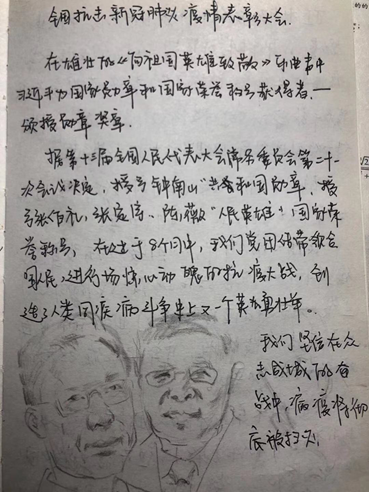 全国抗击新冠肺炎疫情表彰大会.
在雄壮的《向祖国英雄致敬》乐曲声中
习近平为国家勋章和国家荣誉称号获得者一一
颁授勋章奖章.
据第十三届全国人民代表大会常务委员会第二十一
次会议决定,授予钟南山"共和国勋章,授
予张伯礼,张定宇、陈薇"人民英雄"国家荣
誉称号,在过去8个月中,我们党团结带领全
国民,进行场惊心动魄的抗疫大战,创
造了人类同疾病斗争史上又一个英勇壮举。
我们坚信在众
志成城的奋
战中,病疫将彻
底被扫灭.